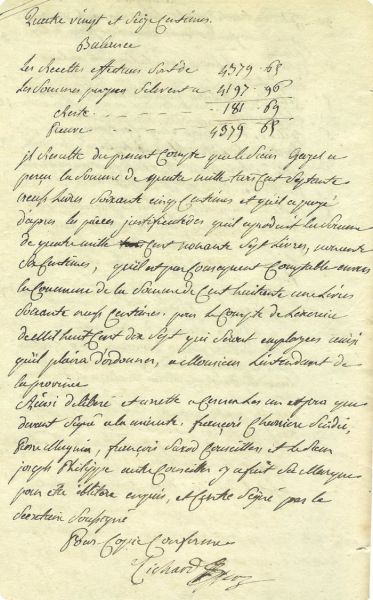 Quatre vingt et Seize Centimes.
Balance
Les Recettes effectives Sont de 4379 . 65
Les Sommes payées S'élèvent a 4197 . 96
Reste - - - - 181 . 69
Preuve - - - - 4379 65
jl Resulte du present Compte que le Sieur a
perçu la Somme de quatre mille trois Cent Septante
neuf Livres Soixante cinq Centimes et qu'il a payé
d'apres les pièces justificatives qu'il a produit la Somme
de quatre mille Cent nonante Sept Livres, nonante
Six Centimes, qu'il est par Consequent Comptable envers
la Commune de la Somme de Cent huitante une Livres
Soixante neuf Centimes. pour le Compte de L'exercice
de mil huit Cent dix Sept qui Seront employées ainsi
qu'il plaira d'ordonner, a Monsieur L'intendant de
la province
Ainsi deliberé et arreté a les an et jour que
devant Signé a la minute. françois Sindic,
Pierre françois Conseillers et le Sieur
joseph Philippe autre Conseiller y a fait Sa Marque
pour etre illitere enquis, et Contre Signé par le
Secretaire Soussigné
Pour Copie Conforme
Richard